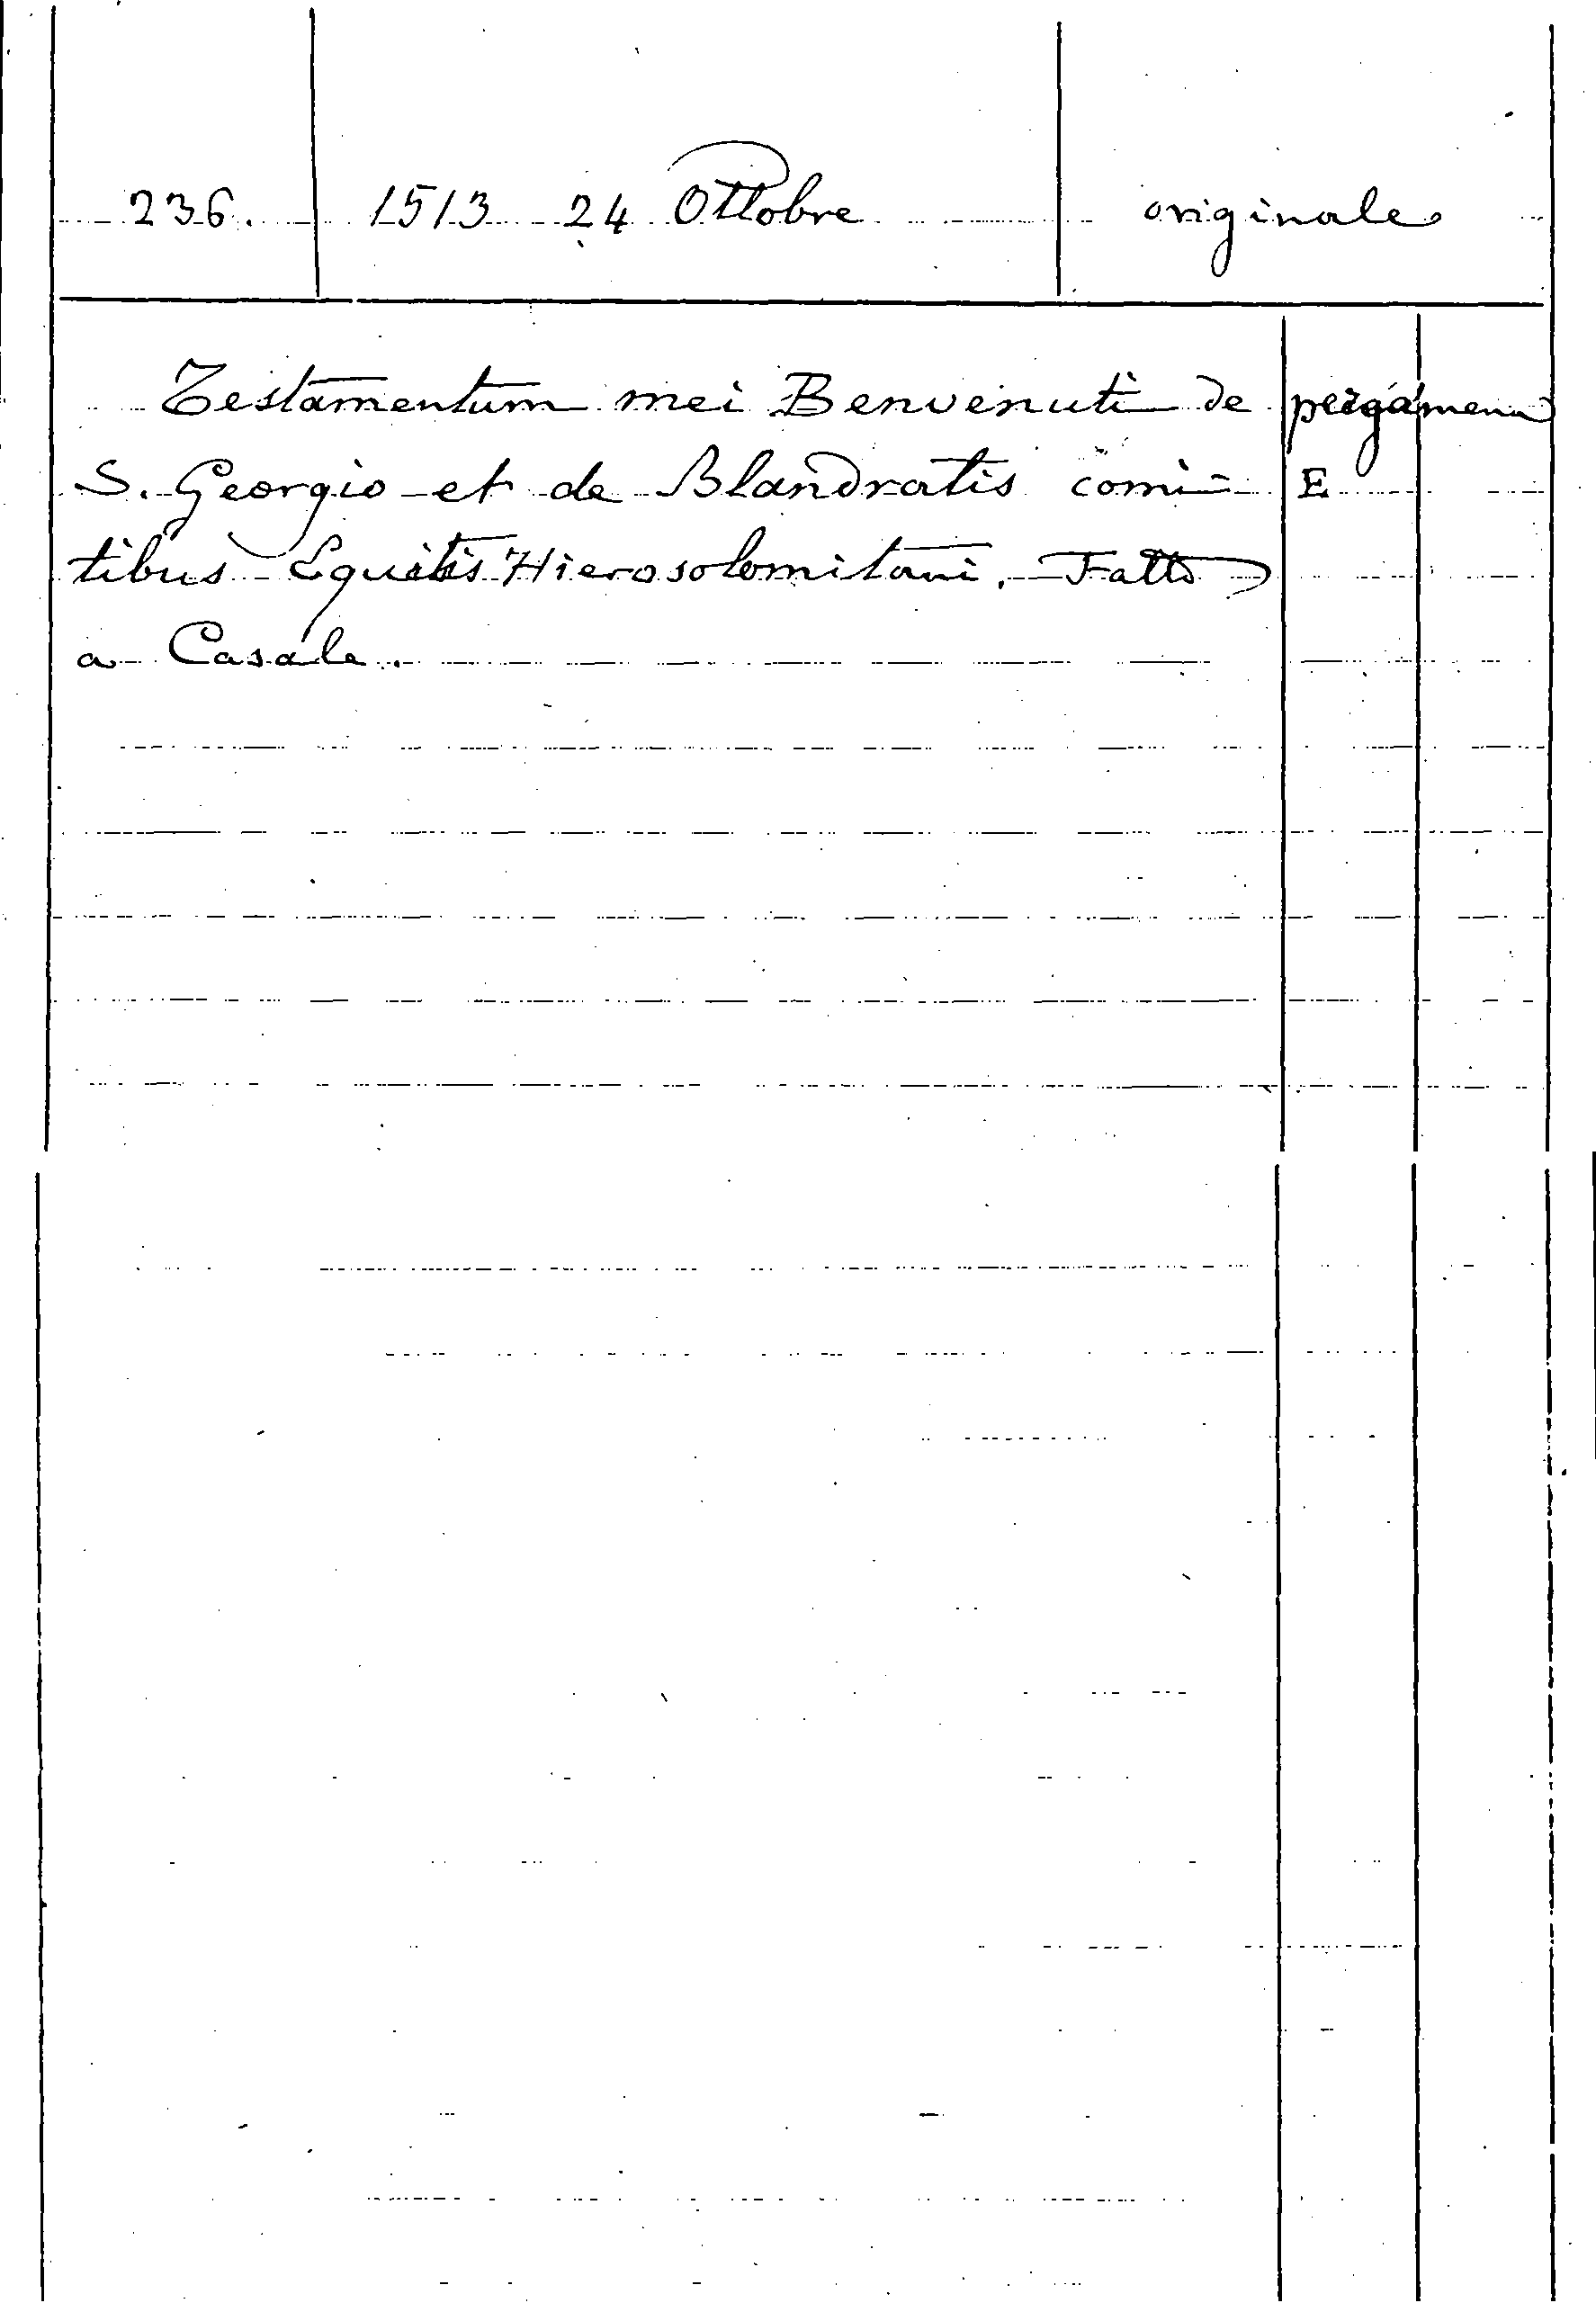 236. 1513 24 Ottobre originale
Testamentum mei Benvenuti de pergamena
S. Georgio et de Blandratis comi= E
tibus Equitis Hierosolomitani. Fatto
a Casale.